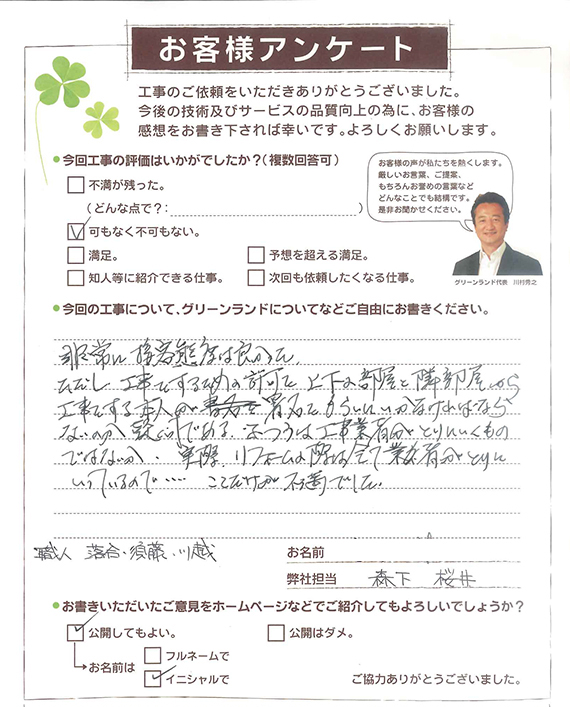 お客様アンケート
工事のご依頼をいただきありがとうございました。
今後の技術及びサービスの品質向上の為に、お客様の
感想をお書き下されば幸いです。よろしくお願いします。
●今回工事の評価はいかがでしたか?(複数回答可)
不満が残った。
(どんな点で?: )
可もなく不可もない。
満足。
予想を超える満足。
知人等に紹介できる仕事。
次回も依頼したくなる仕事。
お客様の声が私たちを熱くします。
厳しいお言葉、ご提案、
もちろんお誉めの言葉など
どんなことでも結構です。
是非お聞かせください。
グリーンランド代表 川村秀之
●今回の工事について、グリーンランドについてなどご自由にお書きください。
非常に接客態度は良かった。
ただし 工事をするための許可を 上下の部屋と隣部屋から
工事をする本人が 署名をもらいにいかなければなら
ないのか 疑問である。ふつうは工事業者がとりにいくもの
ではないか。実際、リフォームの際は全て業者がとりに
いっているので‥‥ ことだけが不満でした。
職人 落合・須藤・川越
お名前
弊社担当 森下 桜井
●お書きいただいたご意見をホームページなどでご紹介してもよろしいでしょうか?
公開してもよい。
公開はダメ。
お名前は
フルネームで
イニシャルで
ご協力ありがとうございました。